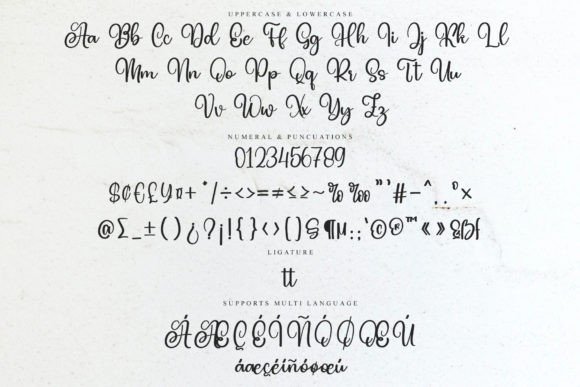 UPPERCASE & LOWERCASE
Aa Bb Cc Dd Ee Ff Gg Hh Ii Jj Kk Ll
Mm Nn Oo Pp Qq Rr Ss Tt Uu
Vv Ww Xx Yy Zz
NUMERAL & PUNCUATIONS
0123456789
$¢€£Y¤+*/÷<>=≠≤≥~%‰"'#-^
@∑_±()¿?¡!{}<>()§¶µ:;'©®™«»
LIGATURE
tt
SUPPORTS MULTI LANGUAGE
ÁÆÇÉÍÑÓØŒÚ
áæçéíñóøœú